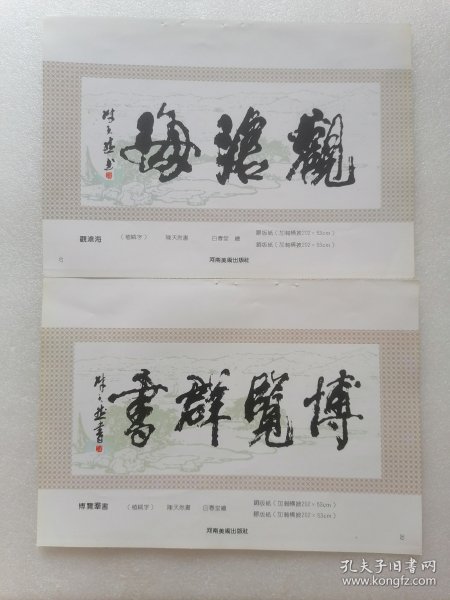 觀滄海
陳天然書
觀滄海 （榜屬字） 陳天然書 白春堂 繪 銅版紙（加軸橫披202×53cm）
膠版紙（加軸橫披202×53cm）
河南美術出版社
博覽群書
陳天然書
博覽羣書 陳天然書 白春堂繪 銅版紙（加軸橫披202×53cm）
膠版紙（加軸橫披202×53cm）
河南美術出版社
孔夫子旧书网
www.kongfz.com